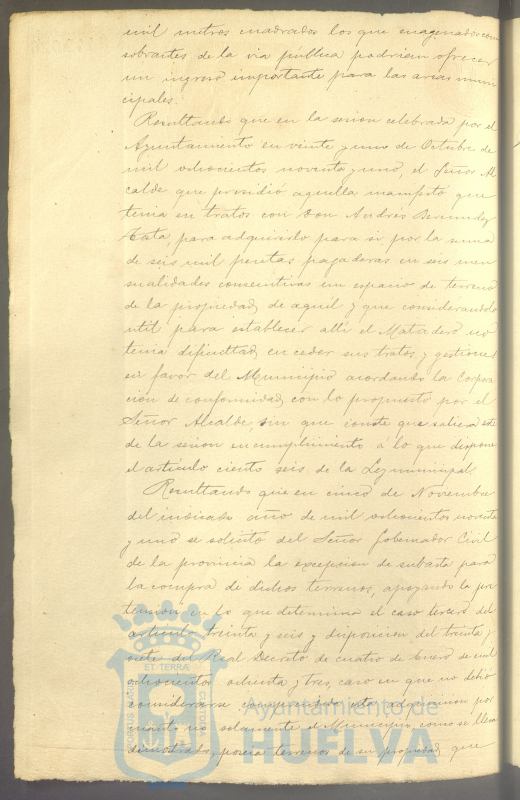 mil metros cuadrados los que enagenados como
sobrantes de la via pública podrian ofrecer
un ingreso importante para las arcas muni
cipales.
Resultando que en la sesion celebrada por el
Ayuntamiento en veinte y uno de Octubre de
mil ochocientos noventa y uno, el Señor Al
calde que presidió aquella manifestó que
tenia en tratos con Don Andrés Bermudez
para adquirirlo para si por la suma
de seis mil pesetas pagaderas en seis men
sualidades consecutivas un espacio de terreno
de la propiedad de aquel y que considerandolo
util para establecer alli el Matadero no
tenia dificultad en ceder sus tratos y gestiones
en favor del Municipio acordando la Corpora
cion de conformidad con lo propuesto por el
Señor Alcalde, sin que conste que saliera este
de la sesion en cumplimiento á lo que dispone
el artículo ciento seis de la Ley municipal.
Resultando que en cinco de Noviembre
del indicado año de mil ochocientos noventa
y uno se solicitó del Señor Gobernador Civil
de la provincia la excepcion de subasta para
la compra de dichos terrenos, apoyando la pre
tension en lo que determina el caso tercero del
articulo treinta y seis y disposicion del treinta y
siete del Real Decreto de cuatro de Enero de mil
ochocientos ochenta y tres, caso en que no debió
considerarse comprendida esta adquisicion por
cuanto no solamente el Municipio, como se lleva
demostrado, poseia terrenos de su propiedad que
PORTUS MARIS
ET TERRÆ
CUSTODIA
Ayuntamiento de
HUELVA